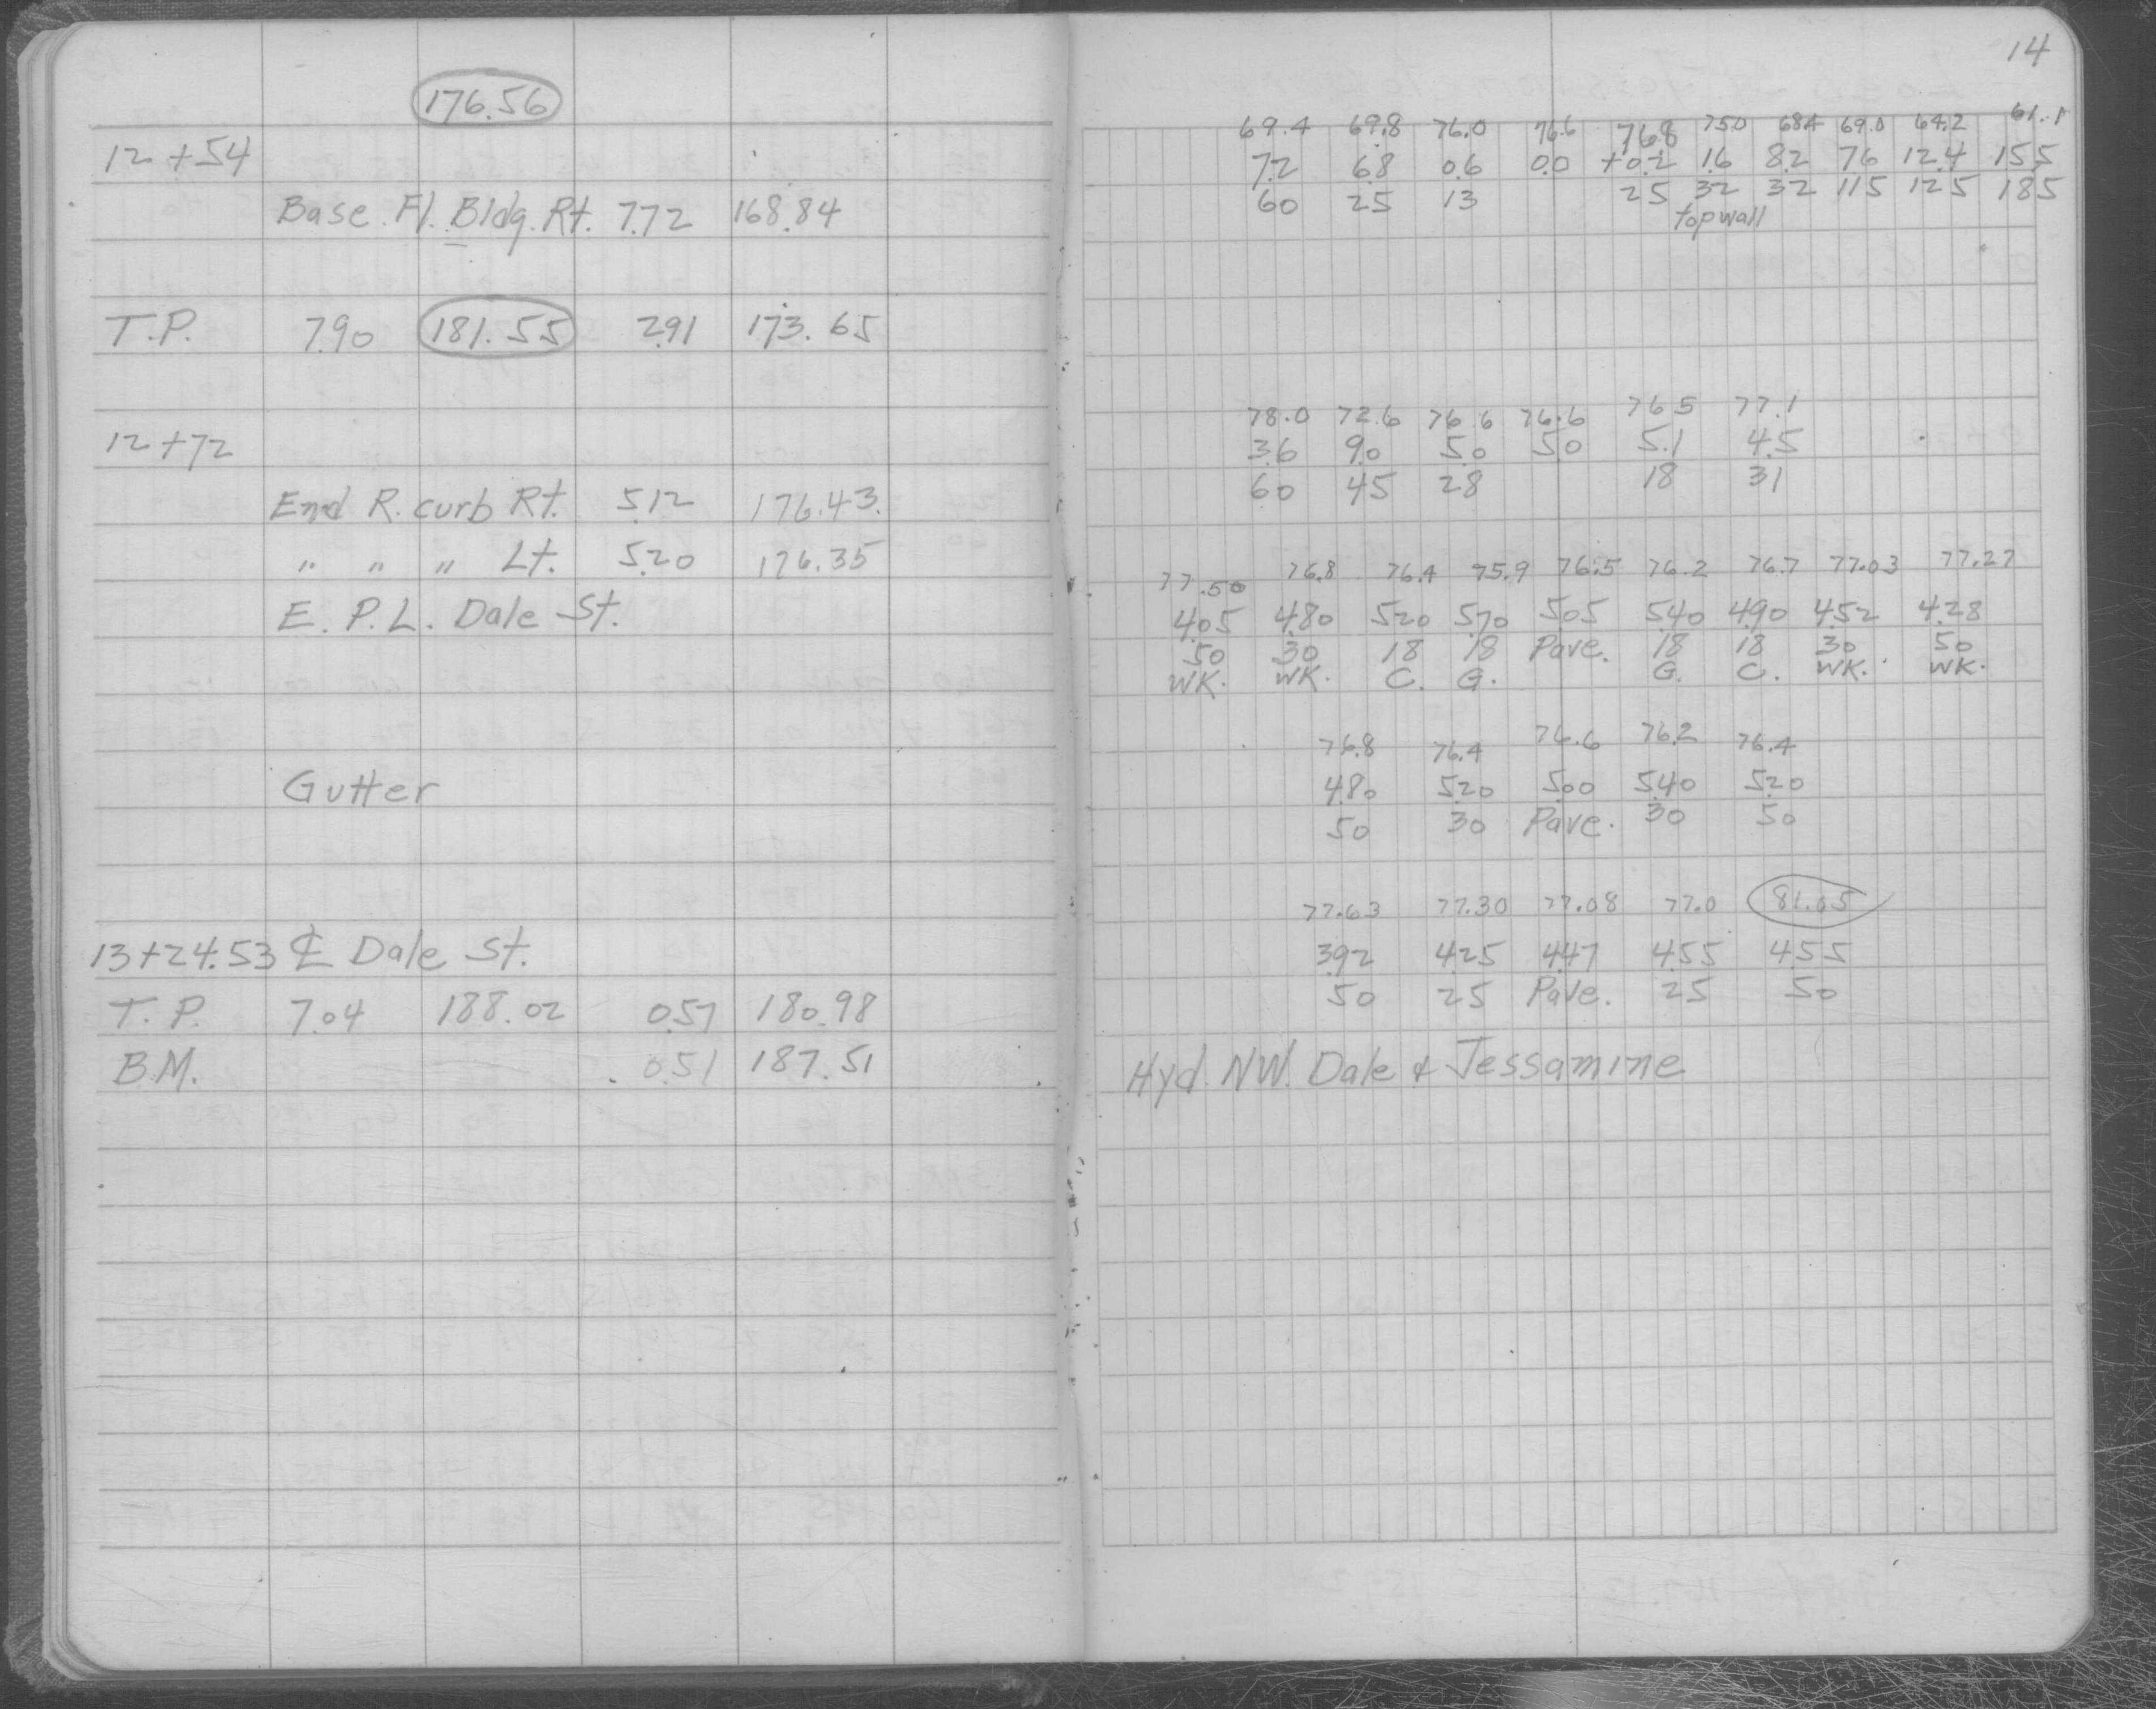 14
176.56
69.4 69.8 76.0 76.6 76.8 75.0 68.4 69.0 64.2 61.1
12+54 7.2 6.8 0.6 0.0 +0.2 1.6 8.2 7.6 12.4 15.5
Base. Fl. Bldg. Rt. 7.72 168.84 60 25 13 25 32 32 115 125 185
top wall
T.P. 7.90 181.55 2.91 173.65
78.0 72.6 76.6 76.6 76.5 77.1
12+72 3.6 9.0 5.0 5.0 5.1 4.5
60 45 28 18 31
End R. curb Rt. 5.12 176.43
" " " Lt. 5.20 176.35 77.50 76.8 76.4 75.9 76.5 76.2 76.7 77.03 77.27
E. P. L. Dale St. 4.05 4.80 5.20 5.70 5.05 5.40 4.90 4.52 4.28
50 30 18 18 Pave. 18 18 30 50
WK. WK. C. G. G. C. WK. WK.
76.8 76.4 76.6 76.2 76.4
Gutter 4.80 5.20 5.00 5.40 5.20
50 30 Pave. 30 50
77.63 77.30 77.08 77.0 81.05
13+24.53 ℄ Dale St. 3.92 4.25 4.47 4.55 4.55
T. P. 7.04 188.02 0.57 180.98 50 25 Pave. 25 50
B.M. 0.51 187.51 Hyd. NW. Dale & Jessamine